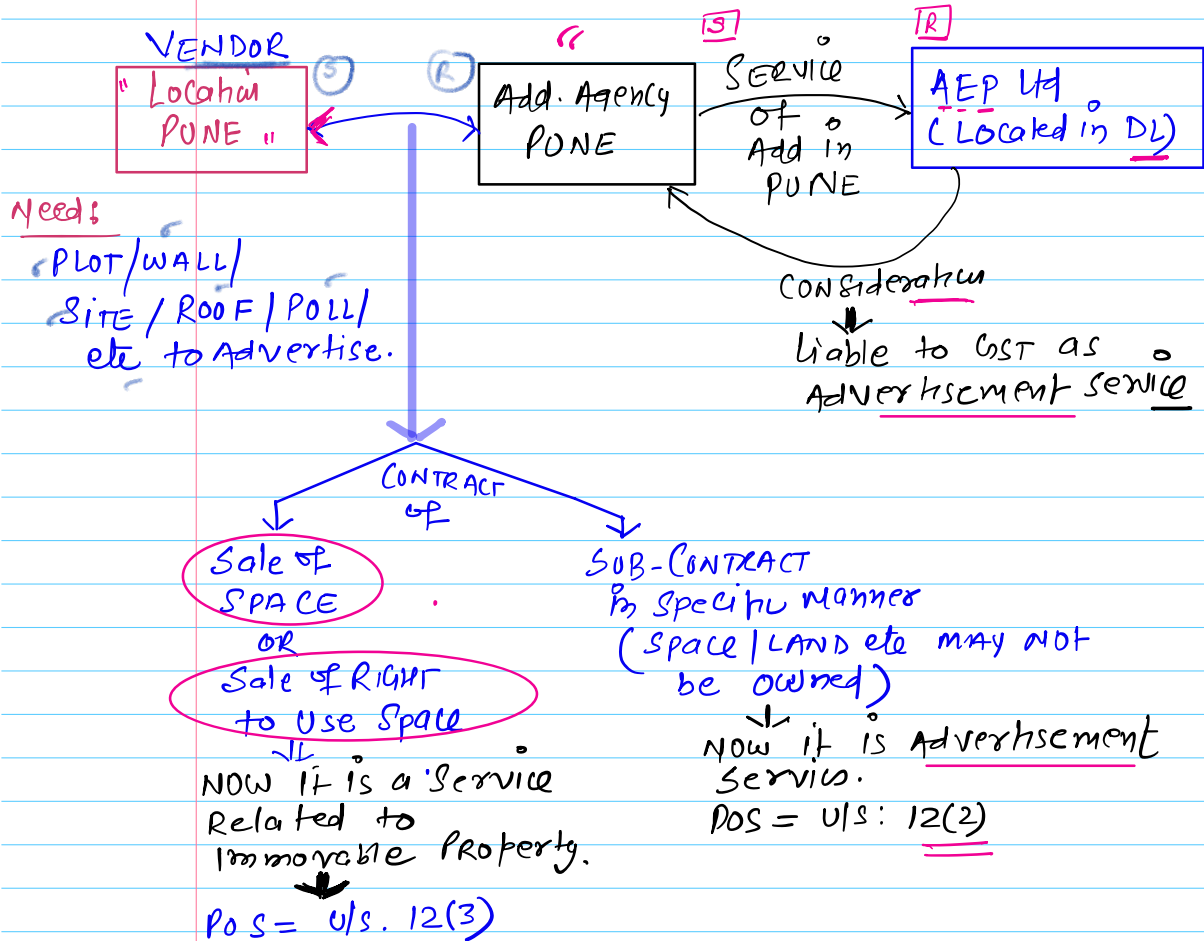 VENDOR
" Location
PUNE "
S
R
Add. Agency
PUNE
"
S
SERVICE
of
Add in
PUNE
R
AEP Ltd
(Located in DL)
Need:
PLOT/WALL/
SITE / ROOF / POLL/
etc to Advertise.
Consideration
Liable to GST as
Advertisement Service
CONTRACT
of
Sale of
SPACE
OR
Sale of RIGHT
to Use Space
NOW it is a 'Service
Related to
Immovable Property.
POS = U/S. 12(3)
SUB-CONTRACT
in Specific Manner
(Space / LAND etc MAY NOT
be owned)
NOW it is Advertisement
Servics.
POS = U/S: 12(2)